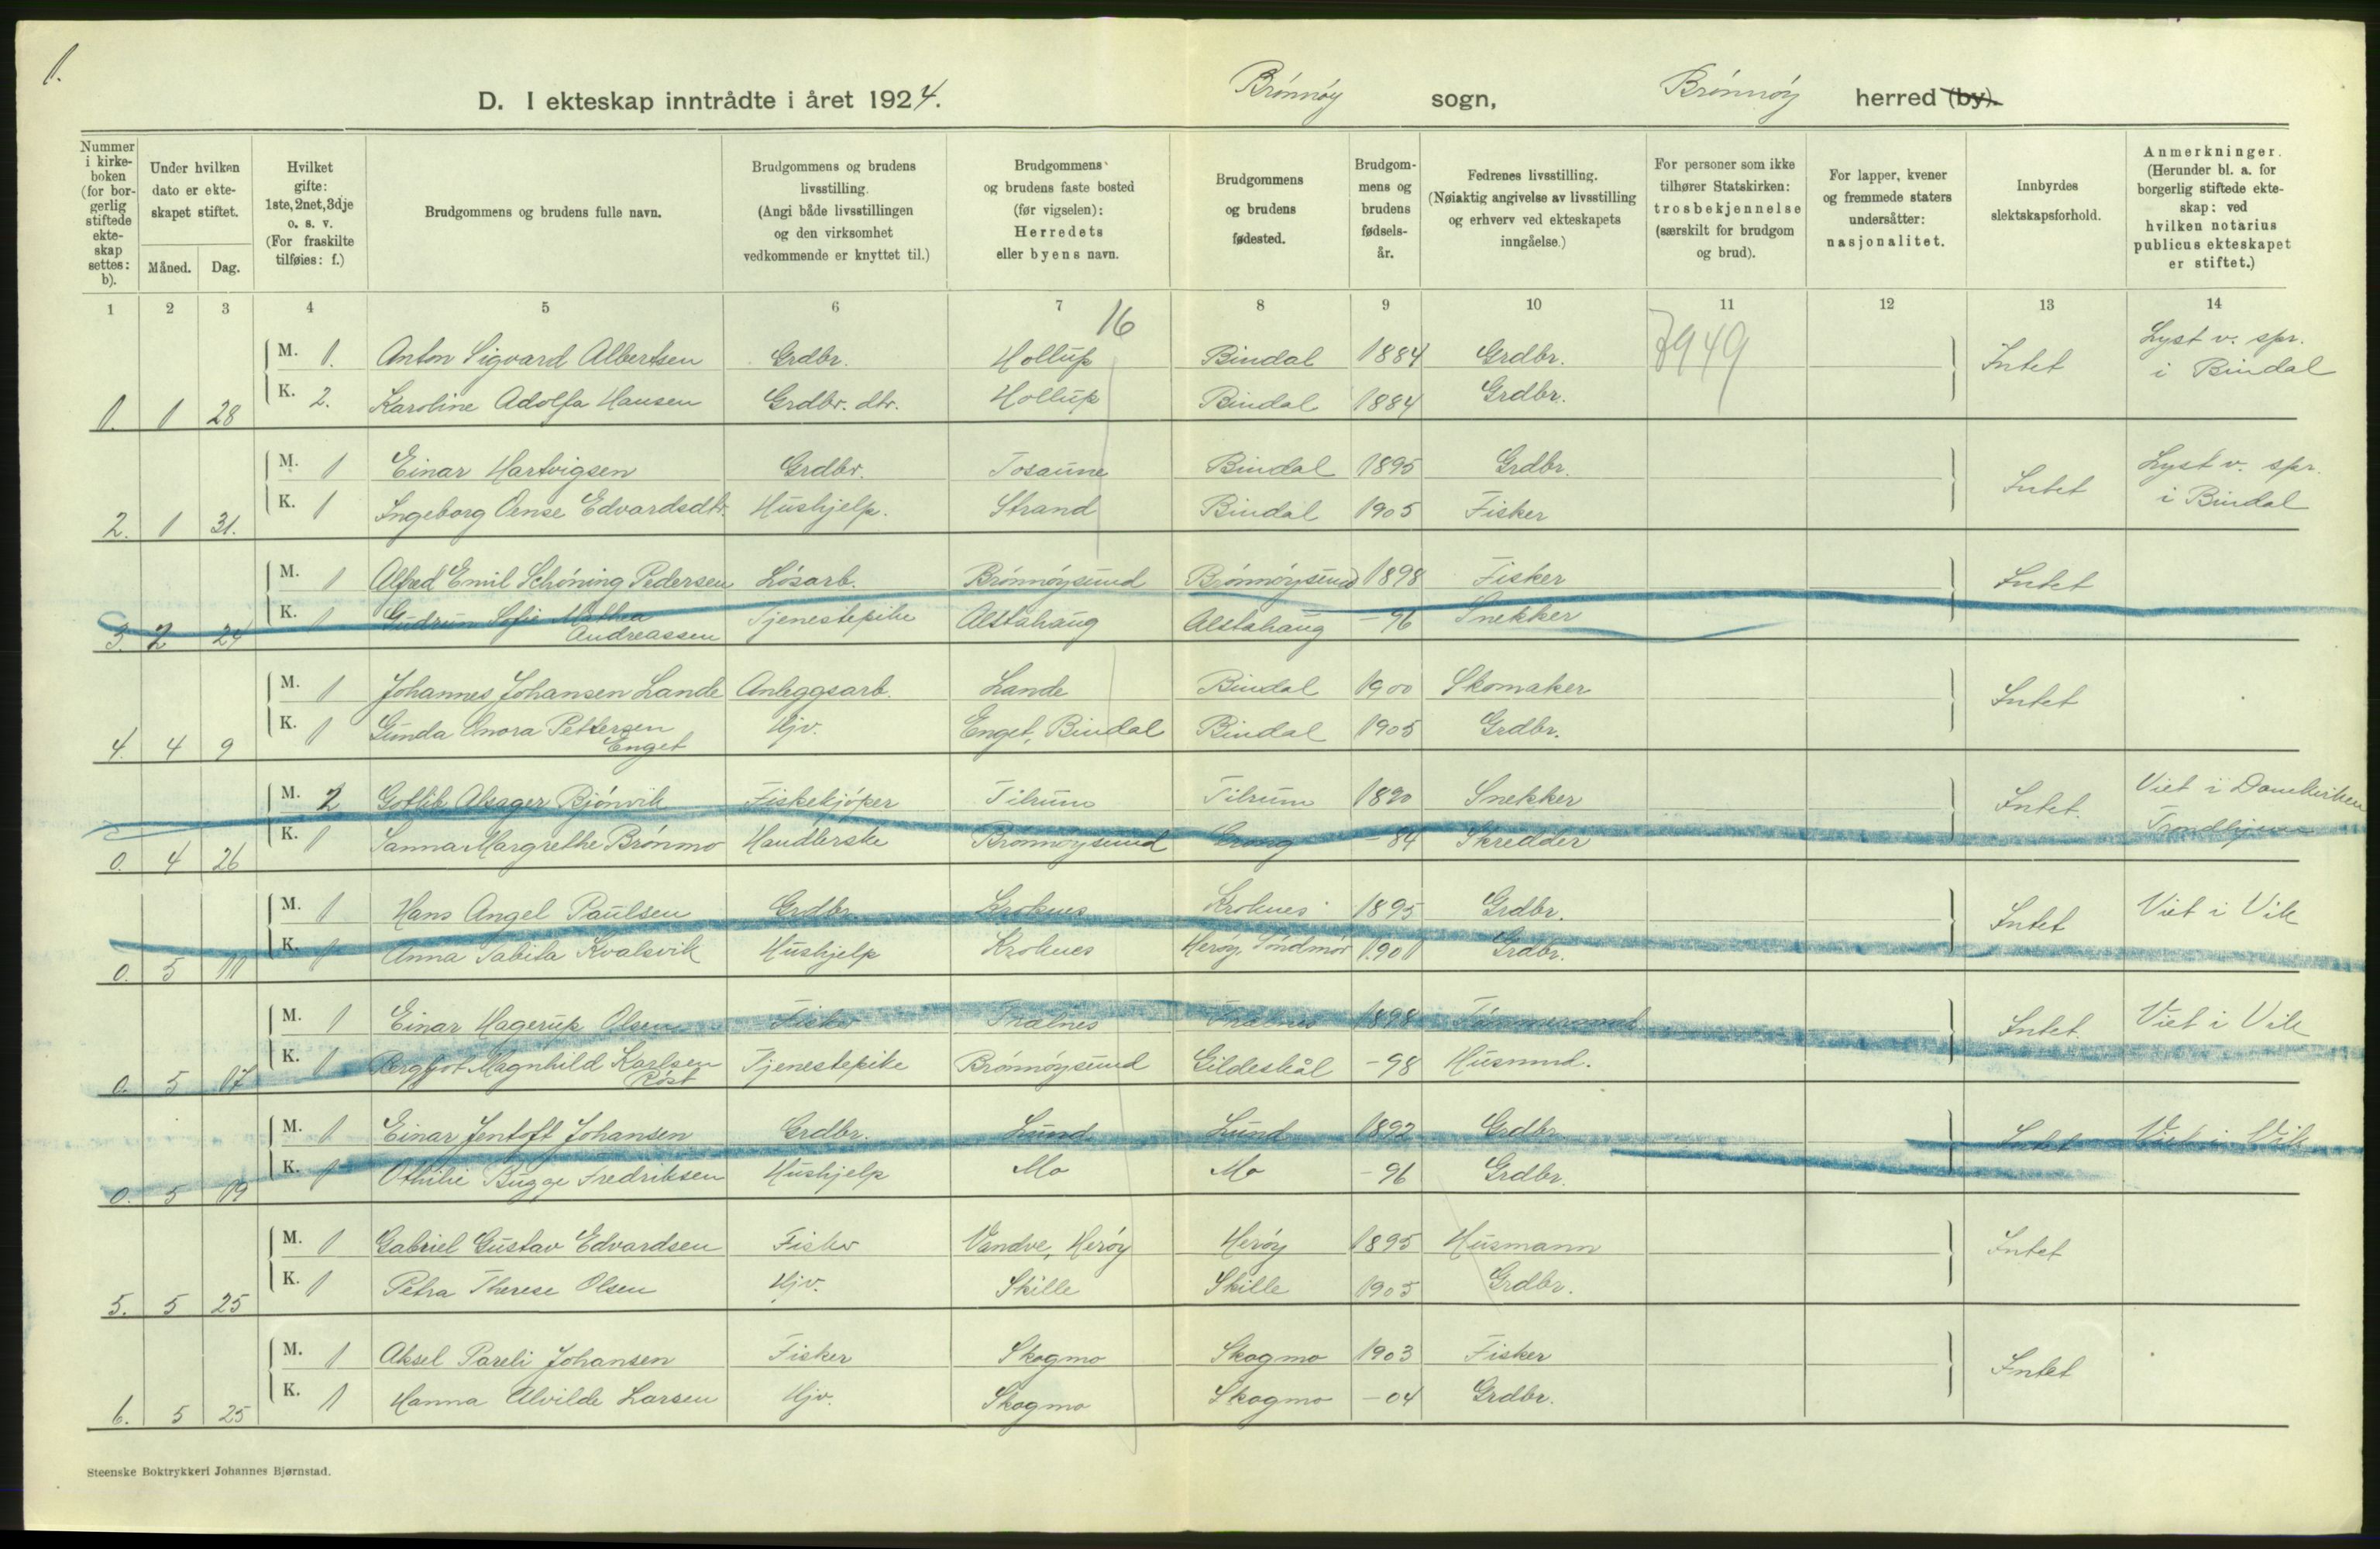 1.
D. I ekteskap inntrådte i året 1924. Brønnøy sogn, Brønnøy herred (by).
Nummer i kirkeboken (for borgerlig stiftede ekteskap settes: b).
Under hvilken dato er ekteskapet stiftet.
Måned. Dag.
Hvilket gifte: 1ste, 2net, 3dje o. s. v. (For fraskilte tilføies: f.)
Brudgommens og brudens fulle navn.
Brudgommens og brudens livsstilling. (Angi både livsstillingen og den virksomhet vedkommende er knyttet til.)
Brudgommens og brudens faste bosted (før vigselen): Herredets eller byens navn.
Brudgommens og brudens fødested.
Brudgommens og brudens fødselsår.
Fedrenes livsstilling. (Nøiaktig angivelse av livsstilling og erhverv ved ekteskapets inngåelse.)
For personer som ikke tilhører Statskirken: trosbekjennelse (særskilt for brudgom og brud).
For lapper, kvener og fremmede staters undersåtter: nasjonalitet.
Innbyrdes slektskapsforhold.
Anmerkninger. (Herunder bl. a. for borgerlig stiftede ekteskap: ved hvilken notarius publicus ekteskapet er stiftet.)
1 2 3 4 5 6 7 8 9 10 11 12 13 14
16
M. 1. Anton Sigvard Albertsen Grdbr. Hollup Bindal 1884 Grdbr. 7949 Intet Lyst v. spr. i Bindal
1. 1 28 K. 2. Karoline Adolfa Hansen Grdbr. dtr. Hollup Bindal 1884 Grdbr.
M. 1 Einar Hartvigsen Grdbr. Tosaune Bindal 1895 Grdbr. Intet Lyst v. spr. i Bindal
2. 1 31. K. 1 Ingeborg Oense Edvardsdtr. Hushjelp. Strand Bindal 1905 Fisker
M. 1 Alfred Emil Schøning Pedersen Løsarb. Brønnøysund Brønnøysund 1898 Fisker Intet
3. 2 24 K. 1 Gudrun Sofie Mathea Andreassen Tjenestepike Alstahaug Alstahaug -96 Snekker
M. 1 Johannes Johansen Lande Anleggsarb. Lande Bindal 1900 Skomaker Intet
4. 4 9 K. 1 Gunda Onora Pettersen Enget Hjv. Enget, Bindal Bindal 1905 Grdbr.
M. 2 Gotlib Alsager Bjønvik Fiskekjøper Tilrum Tilrum 1890 Snekker Intet. Viet i Domkirken Trondhjem
0. 4 26 K. 1 Sanna Margrethe Brønmo Handlerske Brønnøysund -84 Skredder
M. 1 Hans Angel Paulsen Grdbr. Kroknes Kroknes 1895 Grdbr. Intet Viet i Vik
0. 5 11 K. 1 Anna Tabita Kvalsvik Hushjelp Kroknes Herøy, Søndmør 1901 Grdbr.
M. 1 Einar Hagerup Olsen Fisker Trælnes Trælnes 1898 Tømmermand Intet. Viet i Vik
0. 5 17 K. 1 Bergljot Magnhild Karlsen Røst Tjenestepike Brønnøysund Gildeskål -98 Husmnd.
M. 1 Einar Jentoft Johansen Grdbr. Lund Lund 1892 Grdbr. Intet Viet i Vik
0. 5 19 K. 1 Othilie Bugge Fredriksen Hushjelp Mo Mo -96 Grdbr.
M. 1 Gabriel Gustav Edvardsen Fisker Vandve, Herøy Herøy 1895 Husmann Intet
5. 5 25 K. 1 Petra Therese Olsen Hjv. Skille Skille 1905 Grdbr.
M. 1 Aksel Pareli Johansen Fisker Skogmo Skogmo 1903 Fisker Intet
6. 5 25 K. 1 Hanna Alvilde Larsen Hjv. Skogmo Skogmo -04 Grdbr.
Steenske Boktrykkeri Johannes Bjørnstad.